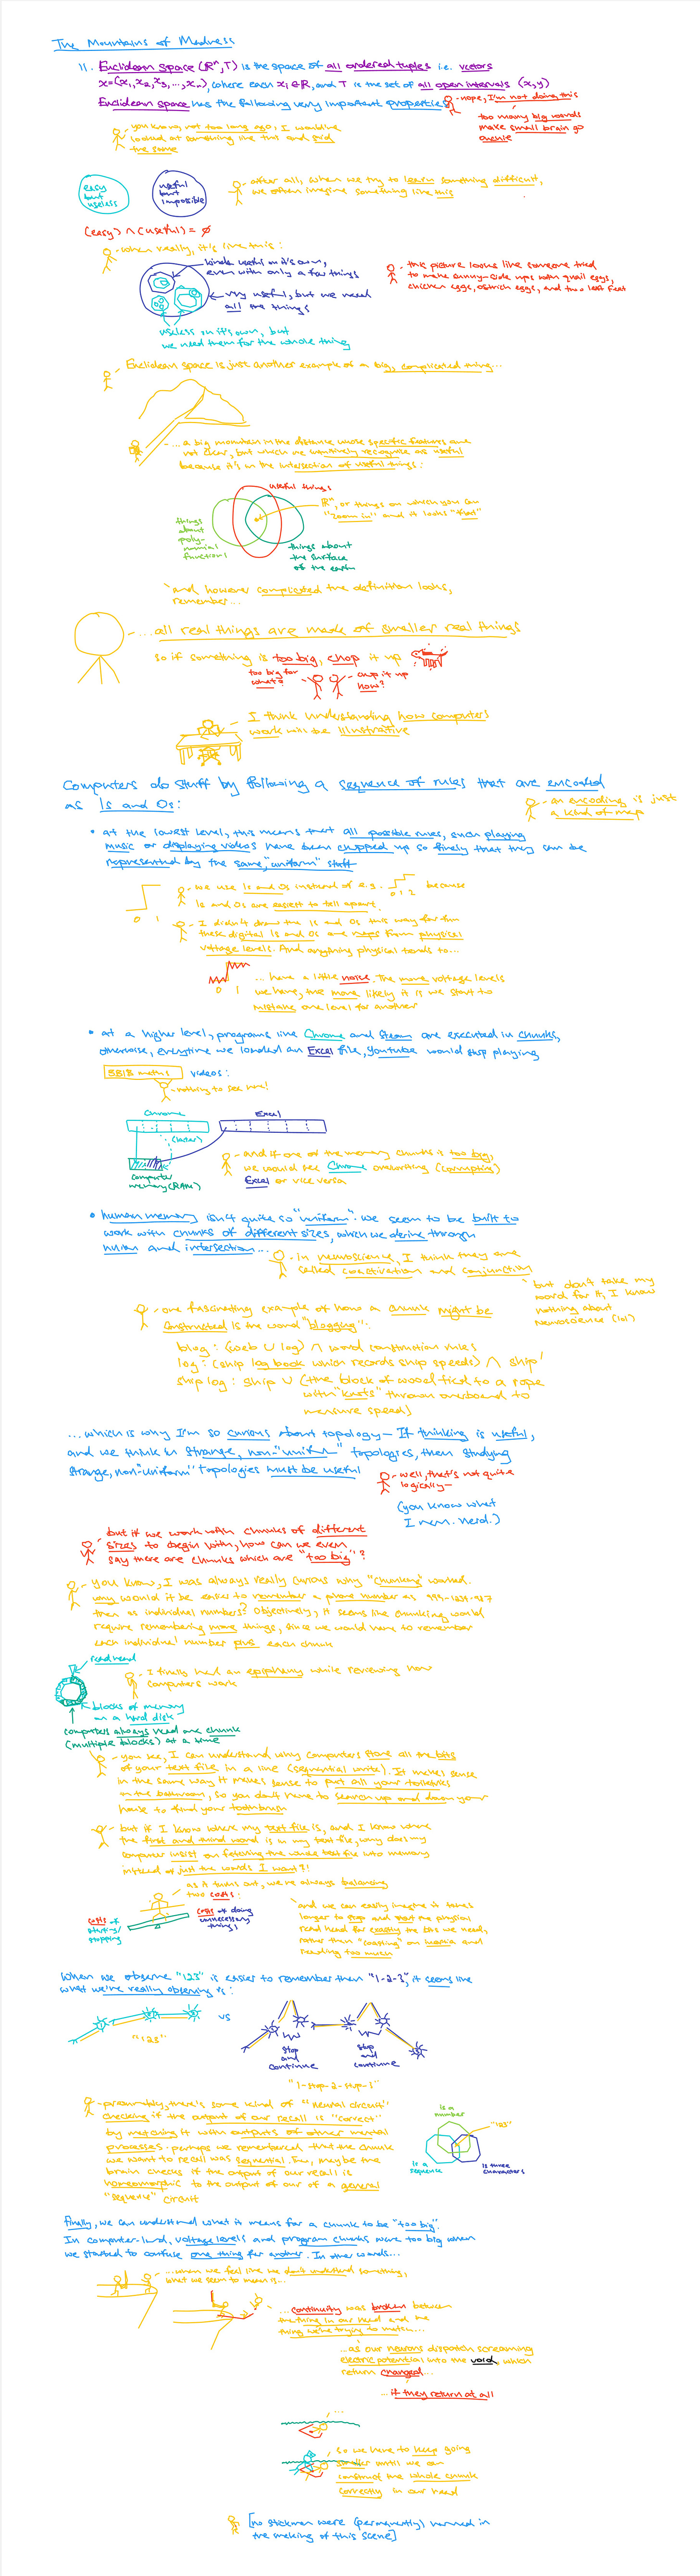 The Mountains of Madness
11. Euclidean space (ℝⁿ,T) is the space of all ordered tuples i.e. vectors
x=(x₁,x₂,x₃,...,xₙ), where each xᵢ∈ℝ, and T is the set of all open intervals (x,y)
Euclidean space has the following very important properties
- nope, I'm not doing this
too many big words
make small brain go
ouchie
you know, not too long ago, I would've
looked at something like this and said
the same
easy
but
useless
useful
but
impossible
after all, when we try to learn something difficult,
we often imagine something like this
(easy) ∩ (useful) = ∅
- when really, it's like this:
kinda useful on it's own,
even with only a few things
very useful, but we need
all the things
useless on it's own, but
we need them for the whole thing
- this picture looks like someone tried
to make sunny-side ups with quail eggs,
chicken eggs, ostrich eggs, and two left feet
Euclidean space is just another example of a big, complicated thing...
...a big mountain in the distance whose specific features are
not clear, but which we intuitively recognize as useful
because it's in the intersection of useful things:
useful things
ℝⁿ, or things on which you can
"zoom in" and it looks "flat"
things
about
poly-
nomial
functions
things about
the surface
of the earth
and however complicated the definition looks,
remember...
...all real things are made of smaller real things
so if something is too big, chop it up
too big for
what?
chop it up
how?
I think understanding how computers
work will be illustrative
Computers do stuff by following a sequence of rules that are encoded
as 1s and 0s:
- an encoding is just
a kind of map
• at the lowest level, this means that all possible rules, such playing
music or displaying videos have been chopped up so finely that they can be
represented by the same, "uniform" stuff
0 1
- we use 1s and 0s instead of e.g. 0 1 2 because
1s and 0s are easiest to tell apart.
- I didn't draw the 1s and 0s this way for fun
these digital 1s and 0s are maps from physical
voltage levels. And anything physical tends to...
0 1
...have a little noise. The more voltage levels
we have, the more likely it is we start to
mistake one level for another
• at a higher level, programs like Chrome and Steam are executed in chunks,
otherwise, everytime we loaded an Excel file, Youtube would stop playing
videos:
- nothing to see here!
Chrome
Excel
(later)
computer
memory (RAM)
- and if one of the memory chunks is too big,
we would see Chrome overwriting (corrupting)
Excel or vice versa
• human memory isn't quite so "uniform". we seem to be built to
work with chunks of different sizes, which we derive through
union and intersection...
- in neuroscience, I think they are
called coactivation and conjunction
but don't take my
word for it, I know
nothing about
neuroscience (lol)
- one fascinating example of how a chunk might be
constructed is the word "blogging":
blog: (web ∪ log) ∩ word construction rules
log: (ship log book which records ship speeds) ∩ ship'
ship log: ship ∪ (the block of wood tied to a rope
with "knots" thrown overboard to
measure speed)
...which is why I'm so curious about topology— If thinking is useful,
and we think in strange, non-"uniform" topologies, then studying
strange, non-"uniform" topologies must be useful
- well, that's not quite
logically—
(you know what
I mean. nerd.)
but if we work with chunks of different
sizes to begin with, how can we even
say there are chunks which are "too big"?
- you know, I was always really curious why "chunking" worked.
why would it be easier to remember a phone number as
than as individual numbers? Objectively, it seems like chunking would
require remembering more things, since we would have to remember
each individual number plus each chunk
read head
- I finally had an epiphany while reviewing how
computers work
blocks of memory
on a hard disk
computers always read one chunk
(multiple blocks) at a time
- you see, I can understand why computers store all the bits
of your text file in a line (sequential write). It makes sense
in the same way it makes sense to put all your toiletries
in the bathroom, so you don't have to search up and down your
house to find your toothbrush
- but if I know where my text file is, and I know where
the first and third word is in my text file, why does my
computer insist on fetching the whole text file into memory
instead of just the words I want?!
as it turns out, we're always balancing
two costs:
costs of
starting/
stopping
costs of doing
unnecessary
things
and we can easily imagine it takes
longer to stop and start the physical
read head for exactly the bits we need,
rather than "coasting" on inertia and
reading too much
When we observe "123" is easier to remember than "1-2-3", it seems like
what we're really observing is:
"123"
vs
stop
and
continue
stop
and
continue
"1-stop-2-stop-3"
- presumably, there's some kind of "neural circuit"
checking if the output of our recall is "correct"
by matching it with outputs of other mental
processes. perhaps we remembered that the chunk
we want to recall was sequential. So, maybe the
brain checks if the output of our recall is
homeomorphic to the output of our of a general
"sequence" circuit
is a
number
"123"
is a
sequence
is three
characters
Finally, we can understand what it means for a chunk to be "too big".
In computer-land, voltage levels and program chunks were too big when
we started to confuse one thing for another. In other words...
...when we feel like we don't understand something,
what we seem to mean is...
...continuity was broken between
the thing in our head and the
thing we're trying to match...
...as our neurons dispatch screaming
electric potential into the void, which
return changed...
...if they return at all
...
so we have to keep going
smaller until we can
construct the whole chunk
correctly in our head
[no stickmen were (permanently) harmed in
the making of this scene]